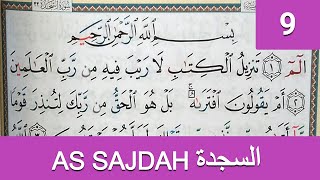 9
بِسْمِ اللَّهِ الرَّحْمَٰنِ الرَّحِيمِ
الٓمٓ ۝١ تَنزِيلُ الْكِتَٰبِ لَا رَيْبَ فِيهِ مِن رَّبِّ الْعَٰلَمِينَ
۝٢ أَمْ يَقُولُونَ افْتَرَىٰهُ ۚ بَلْ هُوَ الْحَقُّ مِن رَّبِّكَ لِتُنذِرَ قَوْمًا
AS SAJDAH السجدة